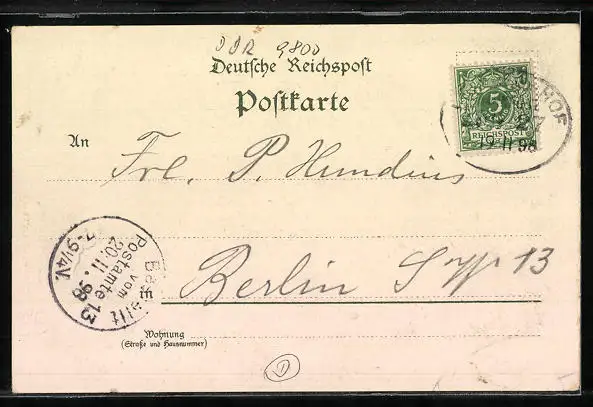 DDR 9800
Deutsche Reichspost
Postkarte
5
REICHSPOST
HOF
19 11 98
An Frl. P. Hundius
in Berlin
13
Bestellt
vom
Postamte 13
20.11.98
7-9¼V.
Wohnung
(Straße und Hausnummer)
D